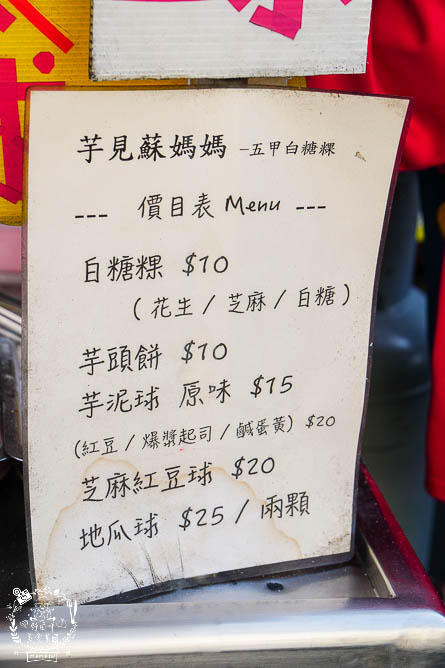 芋見蘇媽媽 –五甲白糖粿
--- 價目表 Menu ---
白糖粿 $10
(花生/芝麻/白糖)
芋頭餅 $10
芋泥球 原味 $15
(紅豆/爆漿起司/鹹蛋黃) $20
芝麻紅豆球 $20
地瓜球 $25/兩顆